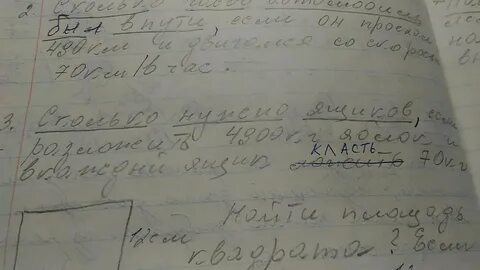 2. Сколько часов автомобиль
был в пути, если он проехал
490км и двигался со скорост
70км/в час.
3. Сколько нужно ящиков, если
разложить 4900кг яблок и
в каждый ящик класть 70кг
12см
Найти площадь
квадрата? Если